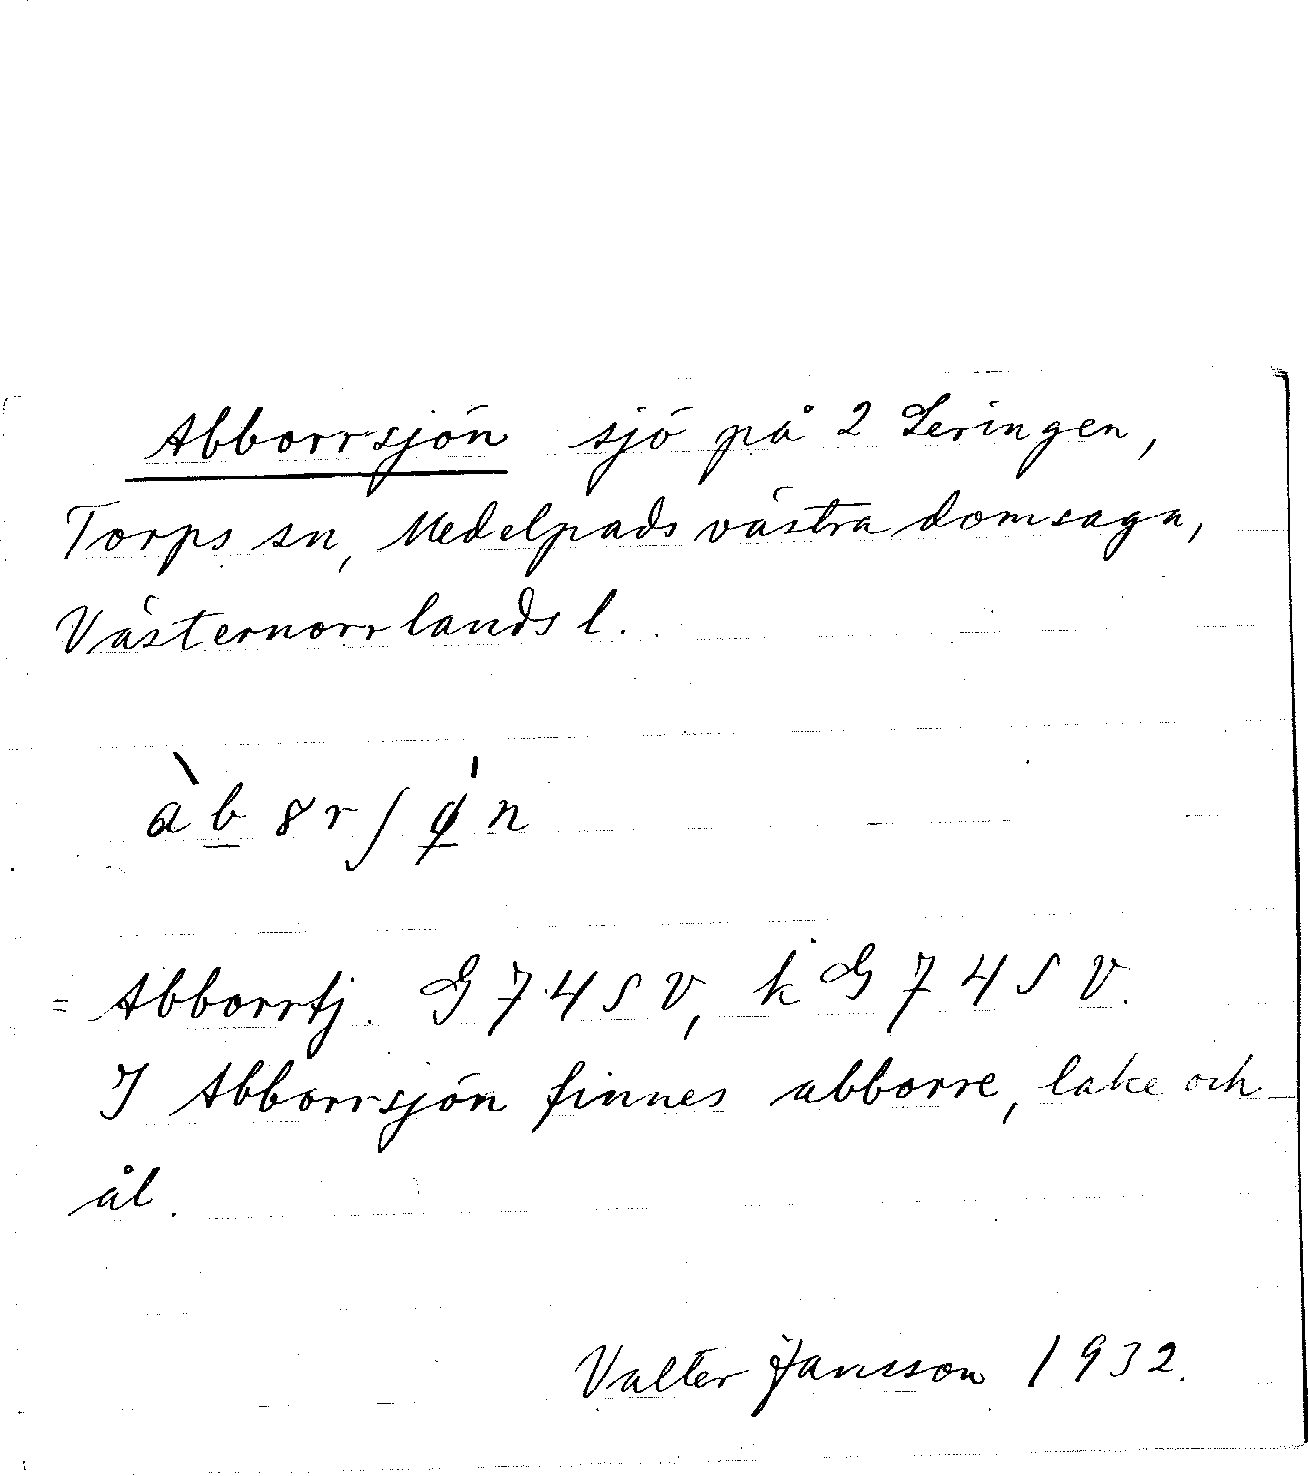 Abborrsjön sjö på 2 Leringen,
Torps sn, Medelpads västra domsaga,
Västernorrlands l.
àb8rʃø̀n
= Abborrtj. G 74 S V, k G 74 S V.
I Abborrsjön finnes abborre, lake och
ål.
Valter Jansson 1932.